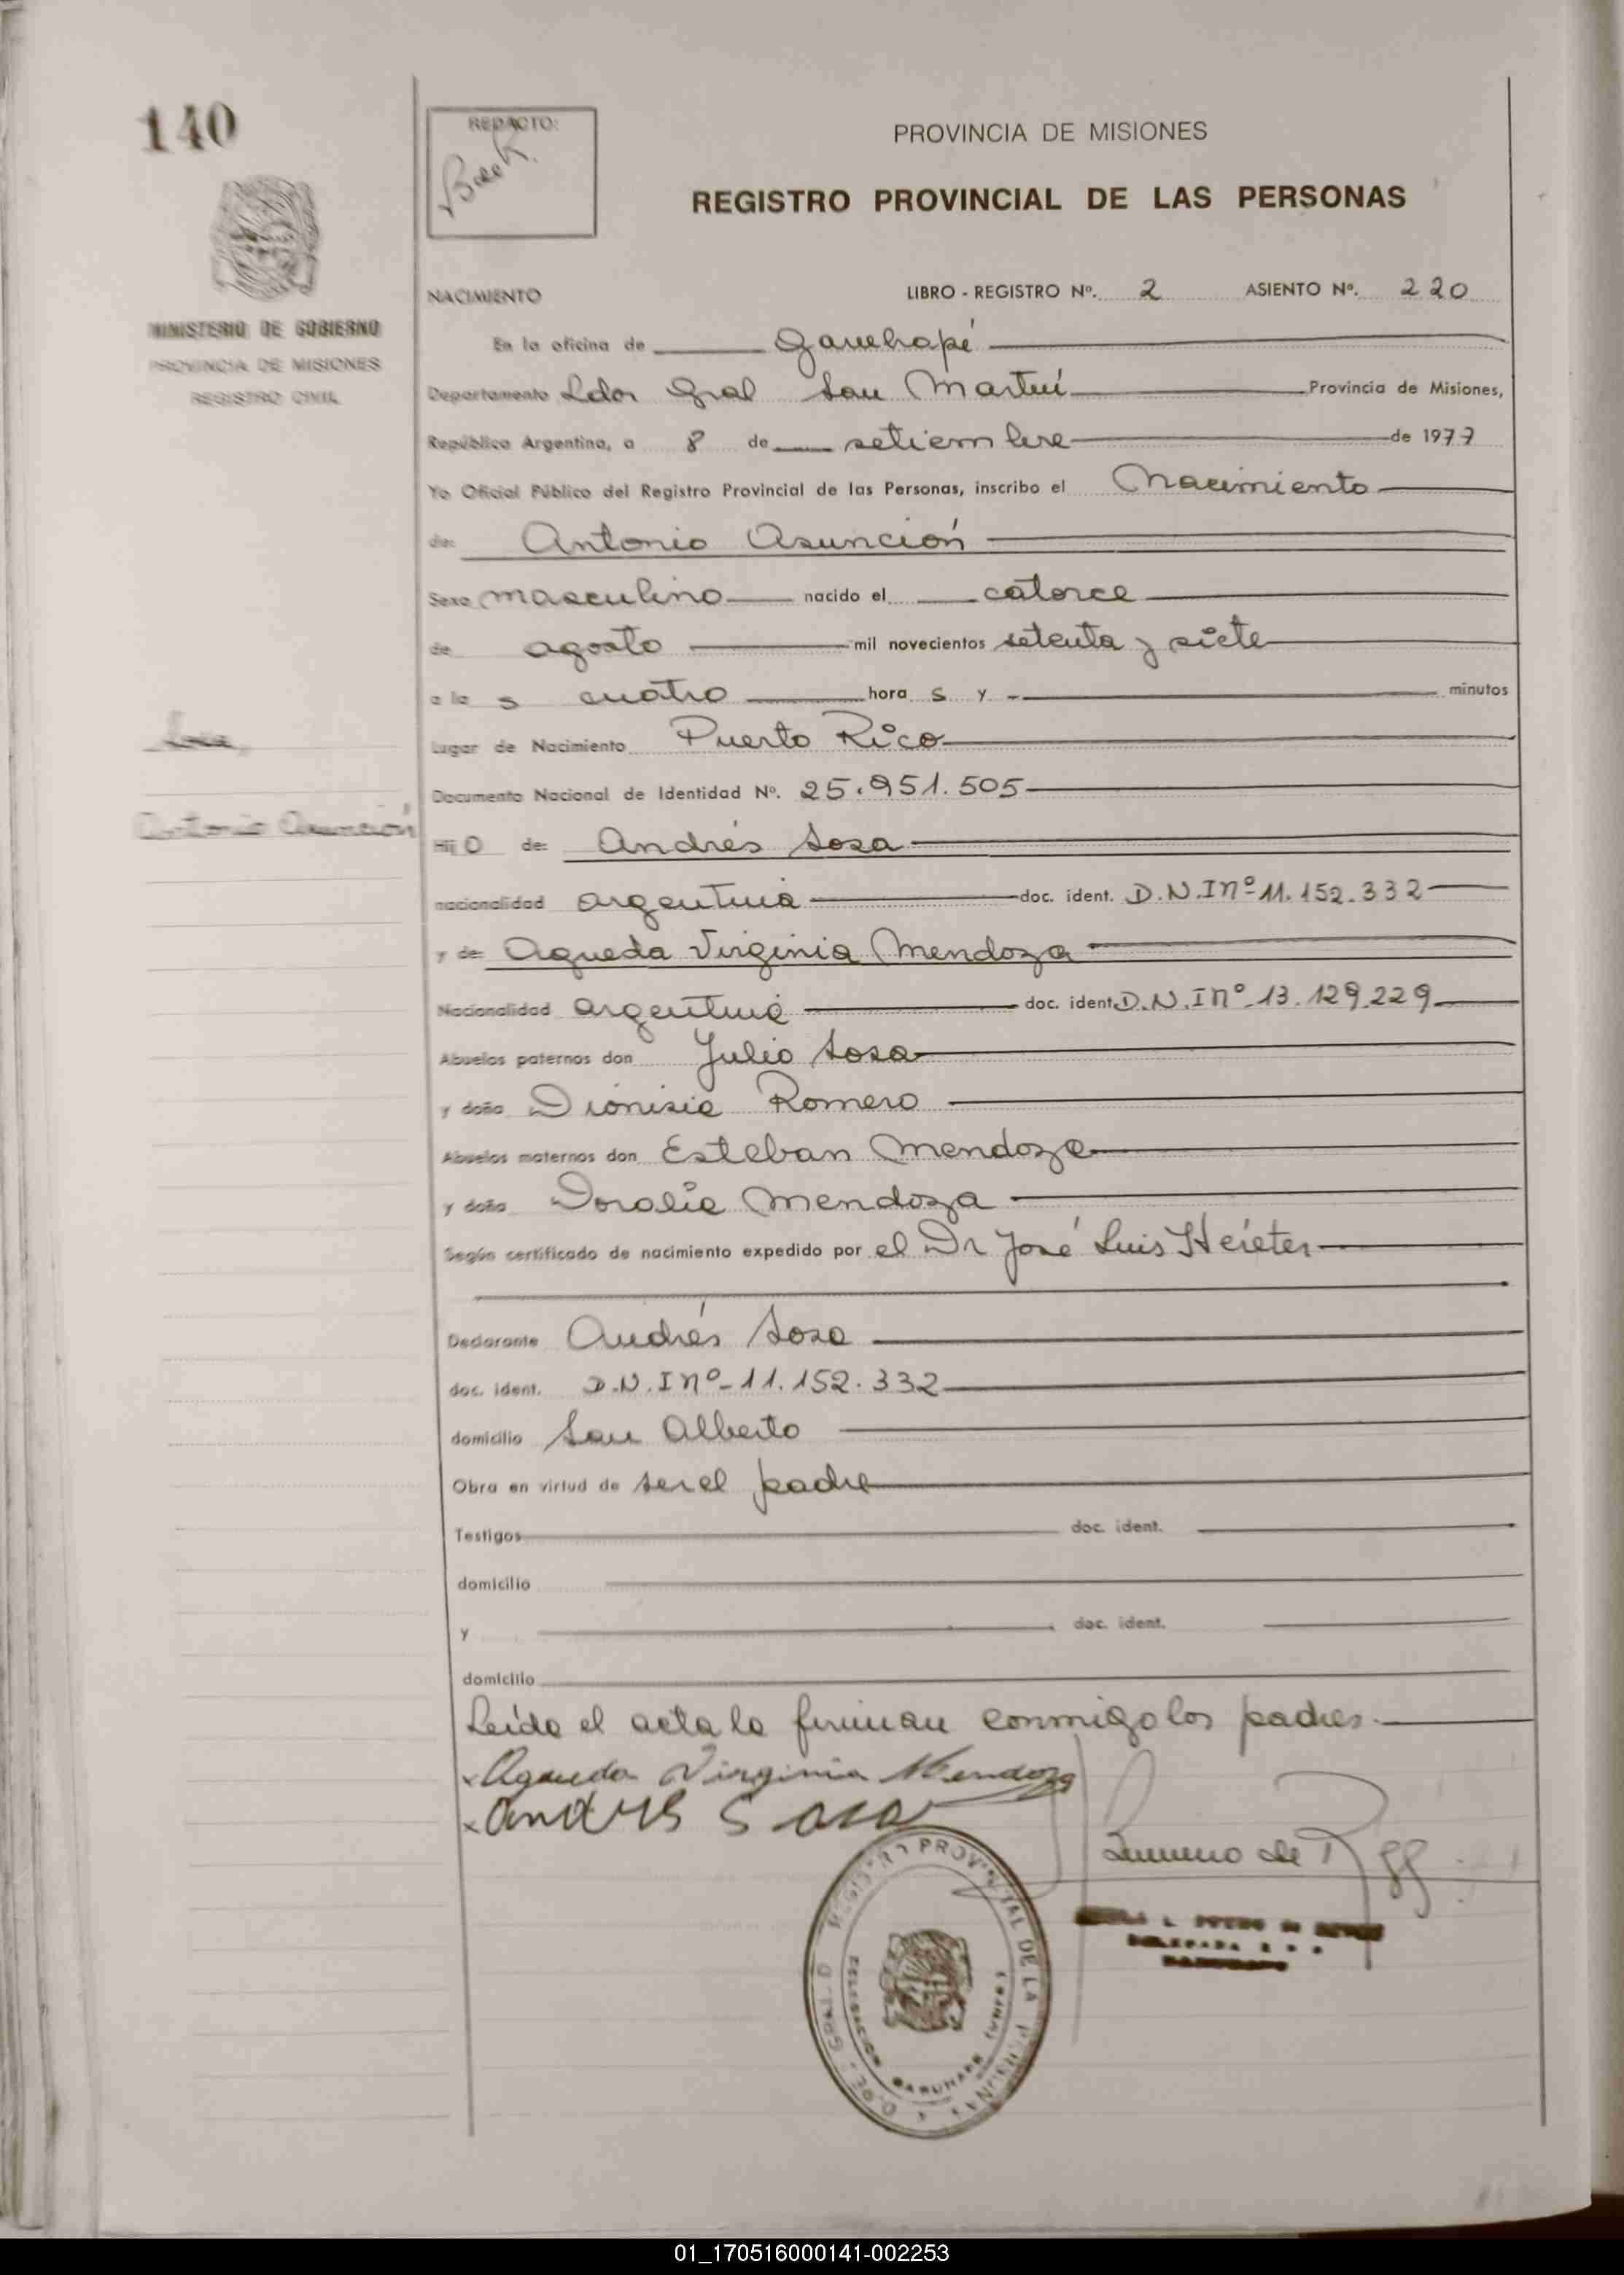 140
REDACTO:
PROVINCIA DE MISIONES
REGISTRO PROVINCIAL DE LAS PERSONAS
MINISTERIO DE GOBIERNO
PROVINCIA DE MISIONES
REGISTRO CIVIL
NACIMIENTO LIBRO - REGISTRO Nº. 2 ASIENTO Nº. 220
En la oficina de Garuhapé
Departamento Ldor Gral San Martín Provincia de Misiones,
República Argentina, a 8 de setiembre de 1977
Yo Oficial Público del Registro Provincial de las Personas, inscribo el Nacimiento
de: Antonio Asunción
Sexo masculino nacido el catorce
de agosto mil novecientos setenta y siete
a la s cuatro hora s y - minutos
Lugar de Nacimiento Puerto Rico
Documento Nacional de Identidad Nº. 25.951.505
Sosa,
Antonio Asunción
Hij o de: Andrés Sosa
nacionalidad argentina doc. ident. D.N.I nº 11.152.332
y de: Agueda Virginia Mendoza
Nacionalidad argentina doc. ident. D.N.I nº 13.129.229
Abuelos paternos don Julio Sosa
y doña Dionisia Romero
Abuelos maternos don Esteban Mendoza
y doña Doralia Mendoza
Según certificado de nacimiento expedido por el Dr José Luis
Declarante Andrés Sosa
doc. ident. D.N.I nº 11.152.332
domicilio San Alberto
Obra en virtud de ser el padre
Testigos doc. ident.
domicilio
y doc. ident.
domicilio
Leída el acta la firman conmigo los padres.
x Agueda Virginia Mendoza
x Andres Sosa
REGISTRO PROVINCIAL DE LA PERSONAS
DELEGACION GARUHAPE
01_170516000141-002253